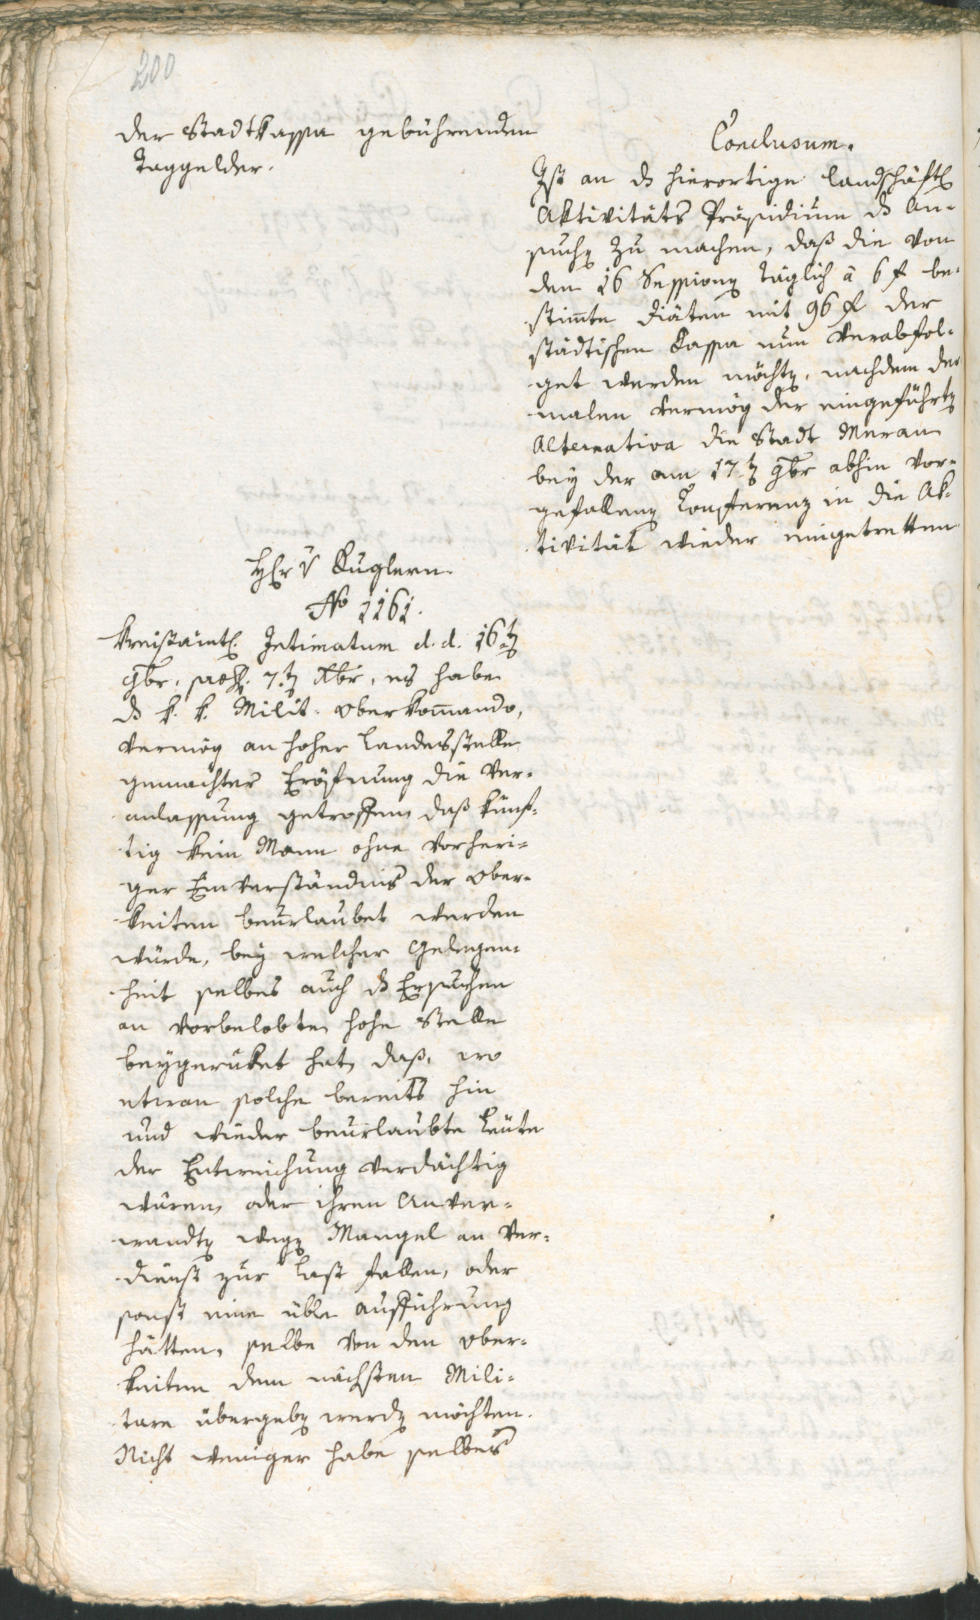 200
der Stadtkassa gebührenden
Taggelder.
Conclusum.
Ist an ds hierortige landschäftl
Aktivitäts Präsidium ds An-
suchen zu machen, daß die von
den 16 Sessionen täglich à 6 f be-
stim̄te Diäten mit 96 f der
städtischen Kassa nun verabfol-
get werden möchten, nachdem der
malen vermög der eingeführten
Alternativa die Stadt Meran
bey der am 17.ten 9br abhin vor-
gefallenen Konferenz in die Ak-
tivität wieder eingetretten
Hr v Kuglern.
No 1161.
Kreisämtl. Intimatum d. d. 16ten
9br, 7.ten Xbr, es habe
ds k. k. Milit. Oberkom̄ando,
vermög an hoher Landesstelle
gemachter Eröfnung die Ver-
anlassung getroffen, daß künf-
tig kein Mann ohne vorheri-
ger Einverständnis der Ober-
keiten beurlaubet werden
würde, bey welcher Gelegen-
heit selbes auch ds Ersuchen
an vorbelobte hohe Stelle
beygerüket hat, daß, wo
etwan solche bereits hin
und wieder beurlaubte Leute
der Entweichung verdächtig
wären, oder ihren Anver-
wandten wegen Mangel an Ver-
dienst zur Last fallen, oder
sonst eine üble Aufführung
hätten, selbe von den Ober-
keiten dem nächsten Mili-
tare übergeben werden möchten.
Nicht weniger habe selbes